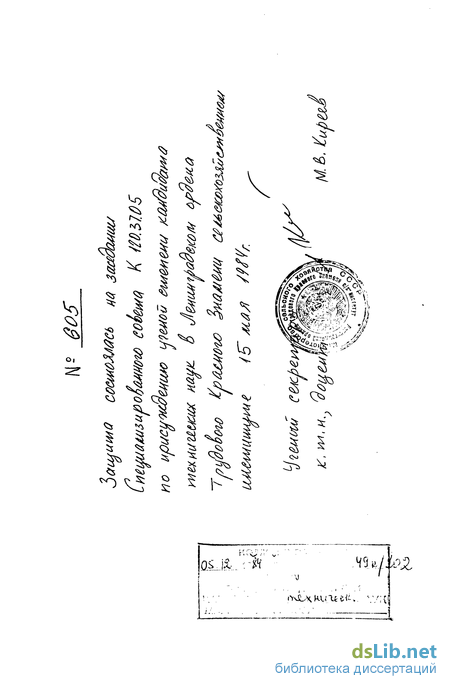 № 605
Защита состоялась на заседании
Специализированного совета К 120.37.05
по присуждению ученой степени кандидата
технических наук в Ленинградском ордена
Трудового Красного Знамени сельскохозяйственном
институте 15 мая 1984г.
Ученый
к.т.н., доцент М.В. Киреев
05 12 84 49н/302
техническ.
dsLib.net
библиотека диссертаций